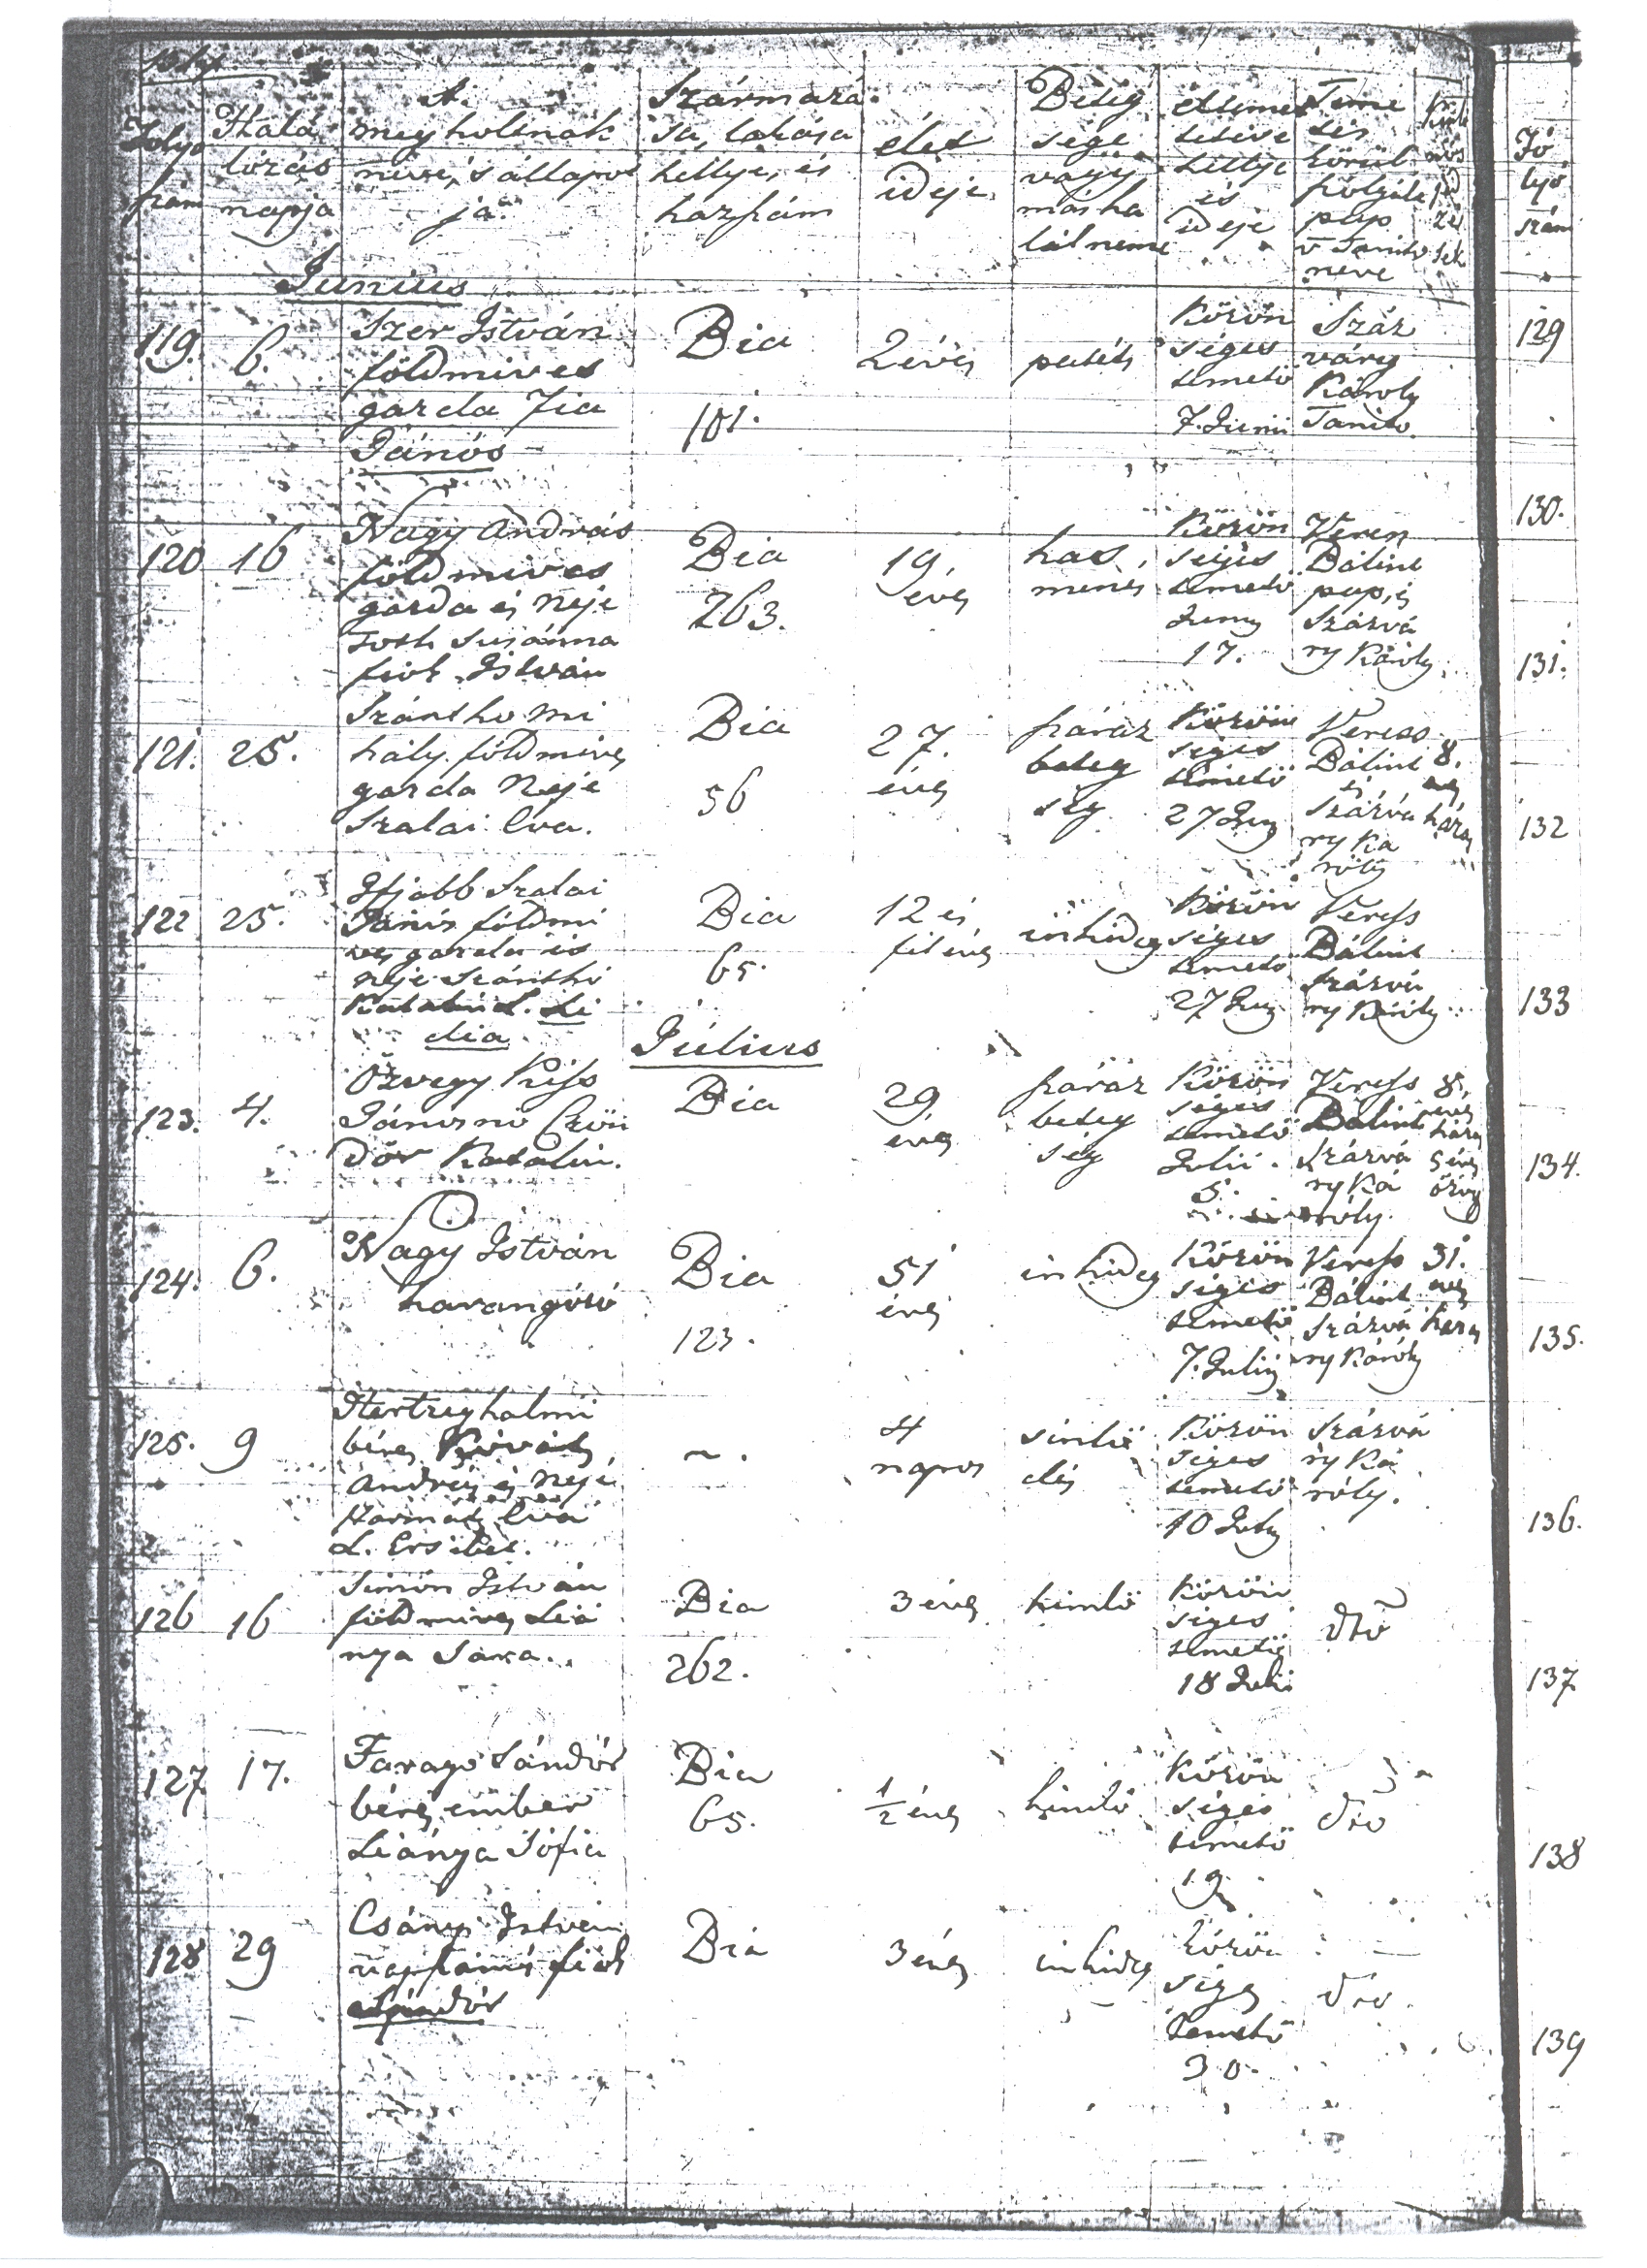 Folyó
szám
Halá
lozás
napja
A
megholtnak
neve, s állapot
ja.
Szármozá
sa, lakása
hellye, és
házszám
élet
ideje
Beteg
sége
vagy
más ha
lál neme
eltemet
tetése
hellye
és
ideje
Teme
tés
körül
szolgáló
pap
v. Tanito
neve
Fó
lyó
szám
Június
119. 6.
Szer István
földmives
gazda fia
Jánós
Bia
101.
2 éves
Közön
séges
temető
7. Junii
Száz
váry
Károly
Tanitó.
129
120 16
Nagy András
földmives
gazda és Neje
Toth Susánna
fiok István
Bia
263.
19.
éves
has
menés
Közön
séges
temető
Juny
17.
Bálint
pap, és
Szárvá
ry Károly.
130.
131.
121. 25.
Szántho Mi
hály földmives
gazda Neje
Szalai Eva.
Bia
56
27.
éves
száraz
beteg
ség
Közön
séges
temető
27 Juny
Veress
Bálint
és
Szárvá
ry Ká
róly
8.
132
122 25.
Ifjabb Szalai
János földmi
ves gazda és
neje Szánthó
Katalin L. Li
dia
Bia
65.
12 és
fél éves
inhideg
Közön
séges
temető
27 Juny
Veress
Bálint
Szárvá
ry Károly
133
Július
123. 4.
Özvegy Kiss
Jánosné
Katalin.
Bia
29
éves
száraz
beteg
ség
Közön
séges
temető
Julii
5.
Veress
Bálint
Szárvá
ry Ká
róly.
8.
5 éves
özv
134.
124. 6.
Nagy István
harangózó
Bia
123.
51
éves
inhideg
Közön
séges
temető
7. Julii
Veress
Bálint
Szárvá
ry Károly
31.
135.
125. 9
Herczeghalmi
béres Kováts
András és Neje
Eva
L. Ersébet.
4
napos
sinlő
dés
Közön
séges
temető
10 July
Szárvá
ry Ká
róly.
136.
126 16
Simón István
földmives Leá
nya Sára.
Bia
262.
3 éves
himlő
Közön
séges
temető
18 Julii
dto
137
127 17.
Farago Sándór
béres ember
Leánya Sófia
Bia
65.
1/2 éves
himlő
Közön
séges
temető
19.
dto
138
128 29
Csányi István
napszámos fiok
Sándór
Bia
3 éves
inhideg
Közön
séges
temető
30.
dto.
139